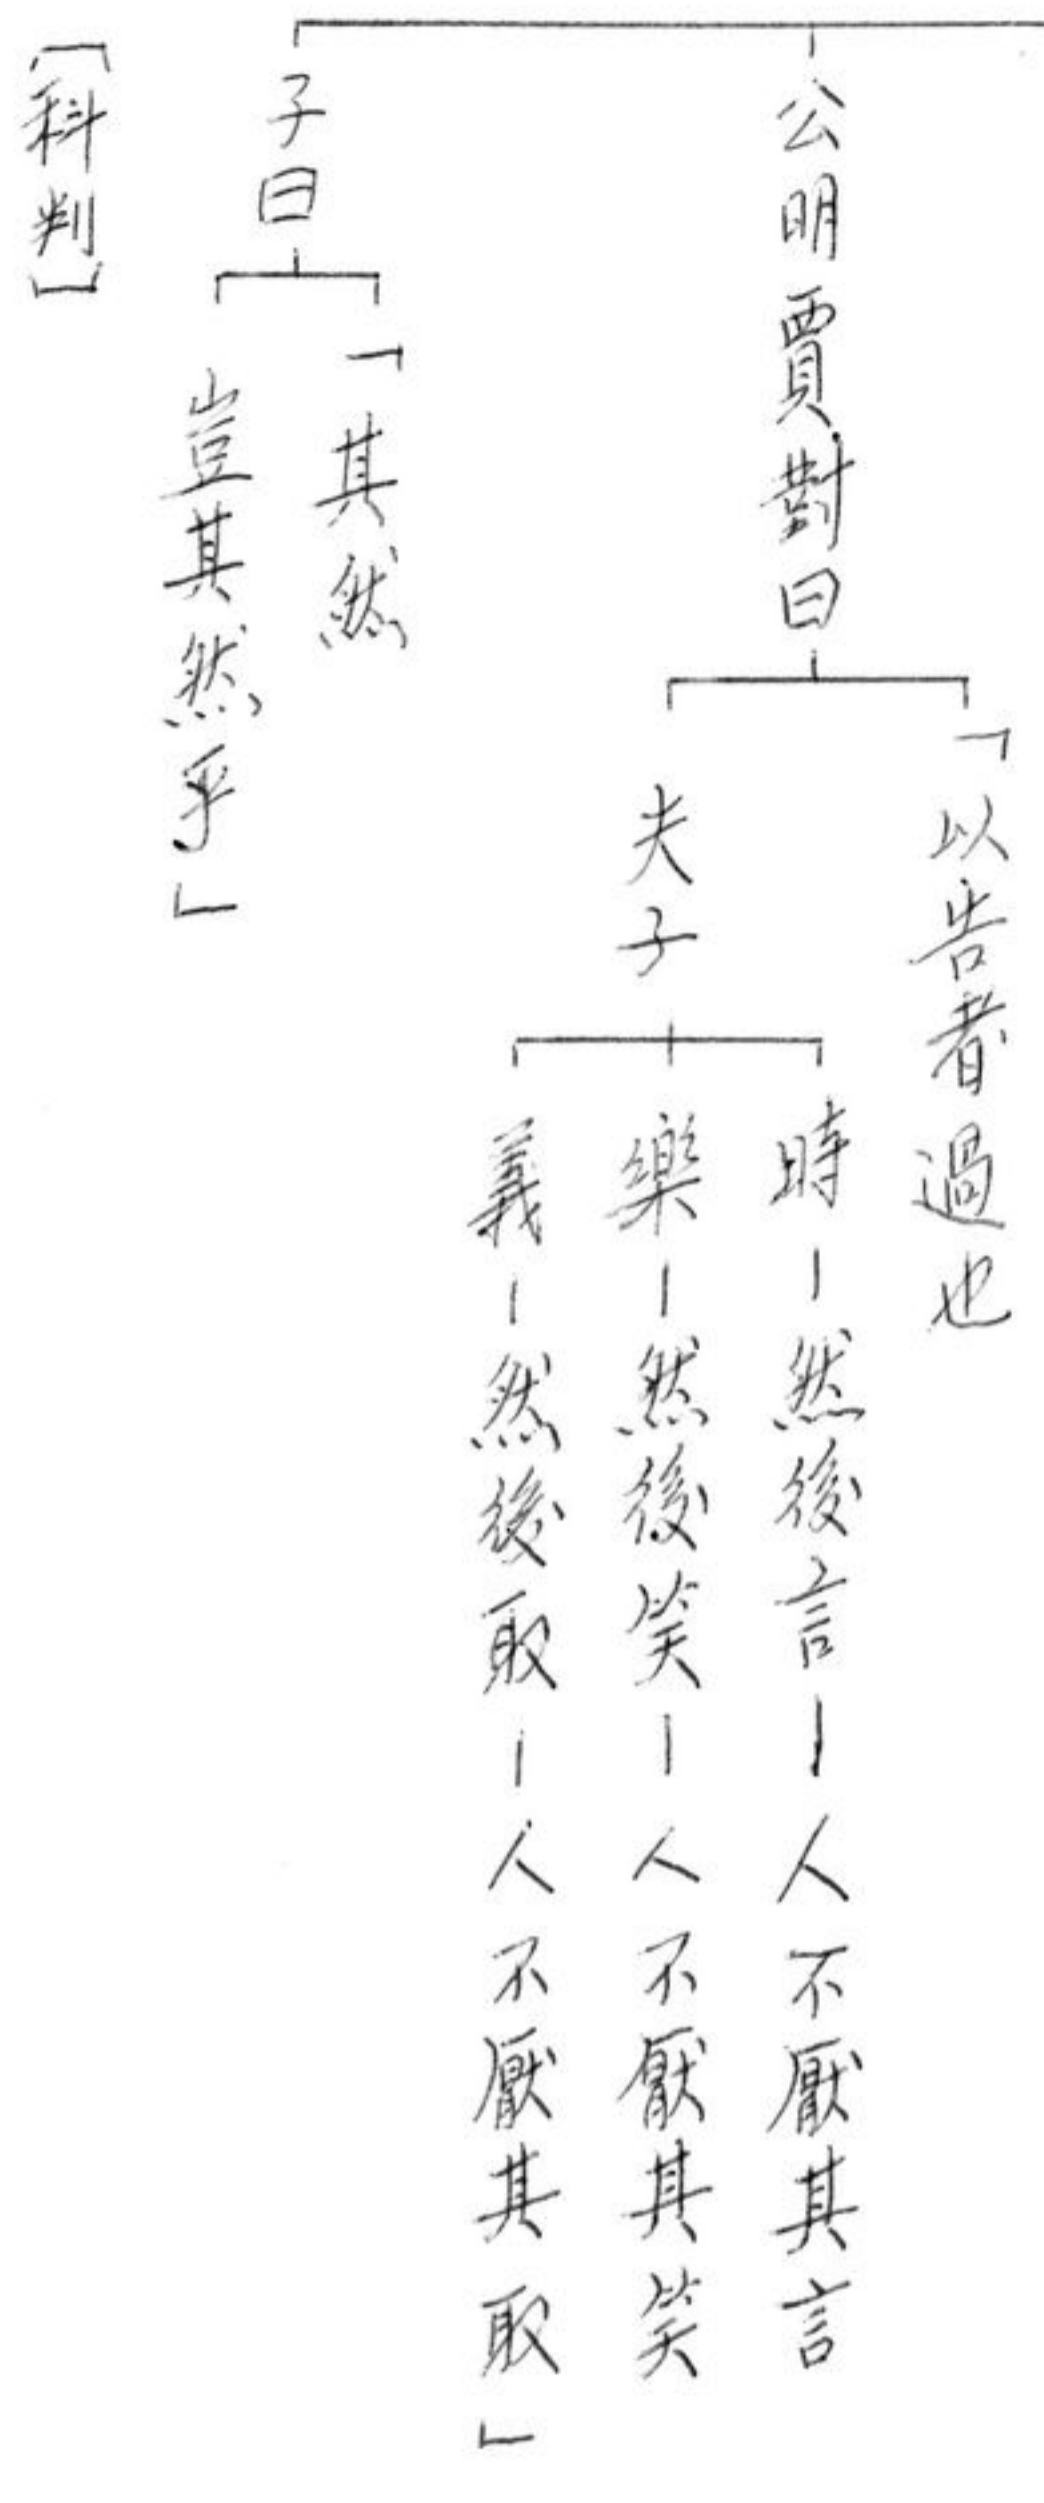 公明賈對曰
「以告者過也
夫子
時－然後言－人不厭其言
樂－然後笑－人不厭其笑
義－然後取－人不厭其取」
子曰
「其然
豈其然乎」
〔科判〕